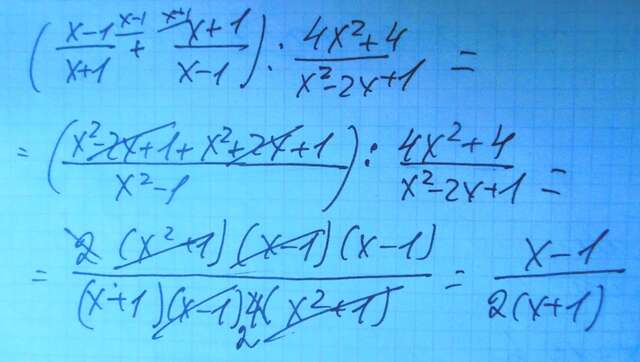 ( (x-1)/(x+1) ^x-1 + ^x+1 (x+1)/(x-1) ) : (4x²+4)/(x²-2x+1) =
= ( (x²-2x+1+x²+2x+1)/(x²-1) ) : (4x²+4)/(x²-2x+1) =
= (2(x²+1)(x-1)(x-1))/((x+1)(x-1)4(x²+1)) 2 = (x-1)/(2(x+1))